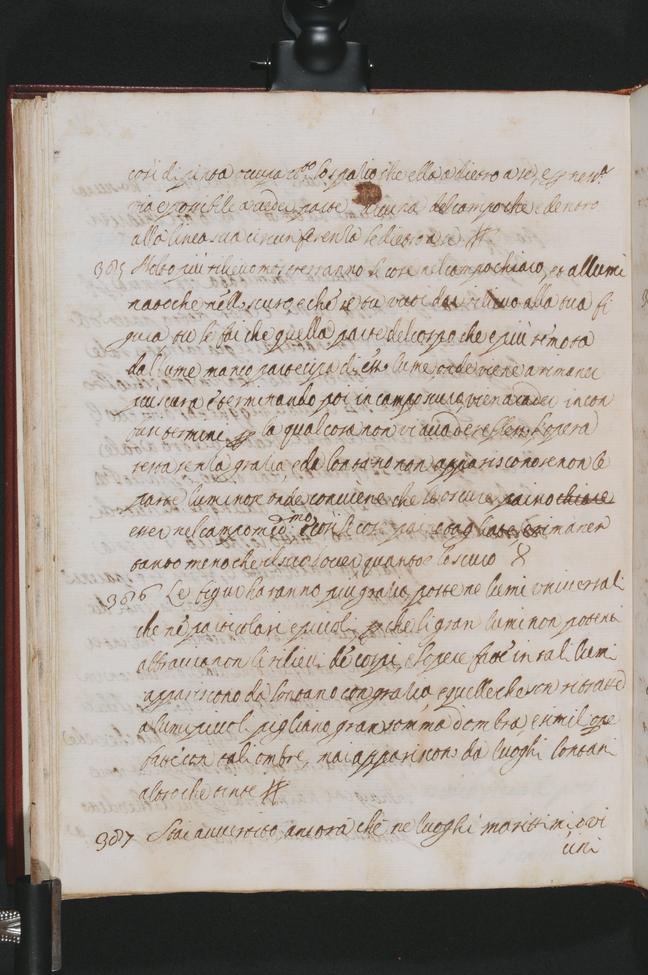 così di circa occupa tto lo spatio che ella a dietro a se, e per nesa
via è possibile a vedere parte alcuna del campo che è dentro
alla linea sua circunferenza se dietro a se
385 Molto più rilievo mostreranno le cose nel campo chiaro, et allumi
nato che nell'oscuro, e che se tu vuoi dar rilievo alla tua fi
gura tu le fai che quella parte del corpo che è più remota
dal lume manco partecipa di esso lume onde viene a rimaner
più scura e terminando poi in campo scuro viene a cader in con
fusi termini la qual cosa non vi l'opera
resta senza gratia, e da lontano non appariscono se non le
parte luminose onde conviene che le oscure paino
esser nel campo medmo e così le cose paino tagliate, e rimaner
tanto meno che il suo dover quanto è l'oscuro
386 Le figure haranno più gratia, poste ne lumi universali
che ne particolari e picoli perche li gran lumi non potenti
abbracianon li rilievi de corpi, e l'opere fate in tali lumi
appariscono da lontano con gratia, e quelle che son ritratte
a lumi picoli pigliano gran somma d'ombra, e simil ope
fate con tali ombre, mai appariscono da luoghi lontani
altro che tinte
387 Stai avvertito, ancora che ne luoghi maritimi, o vi
cini